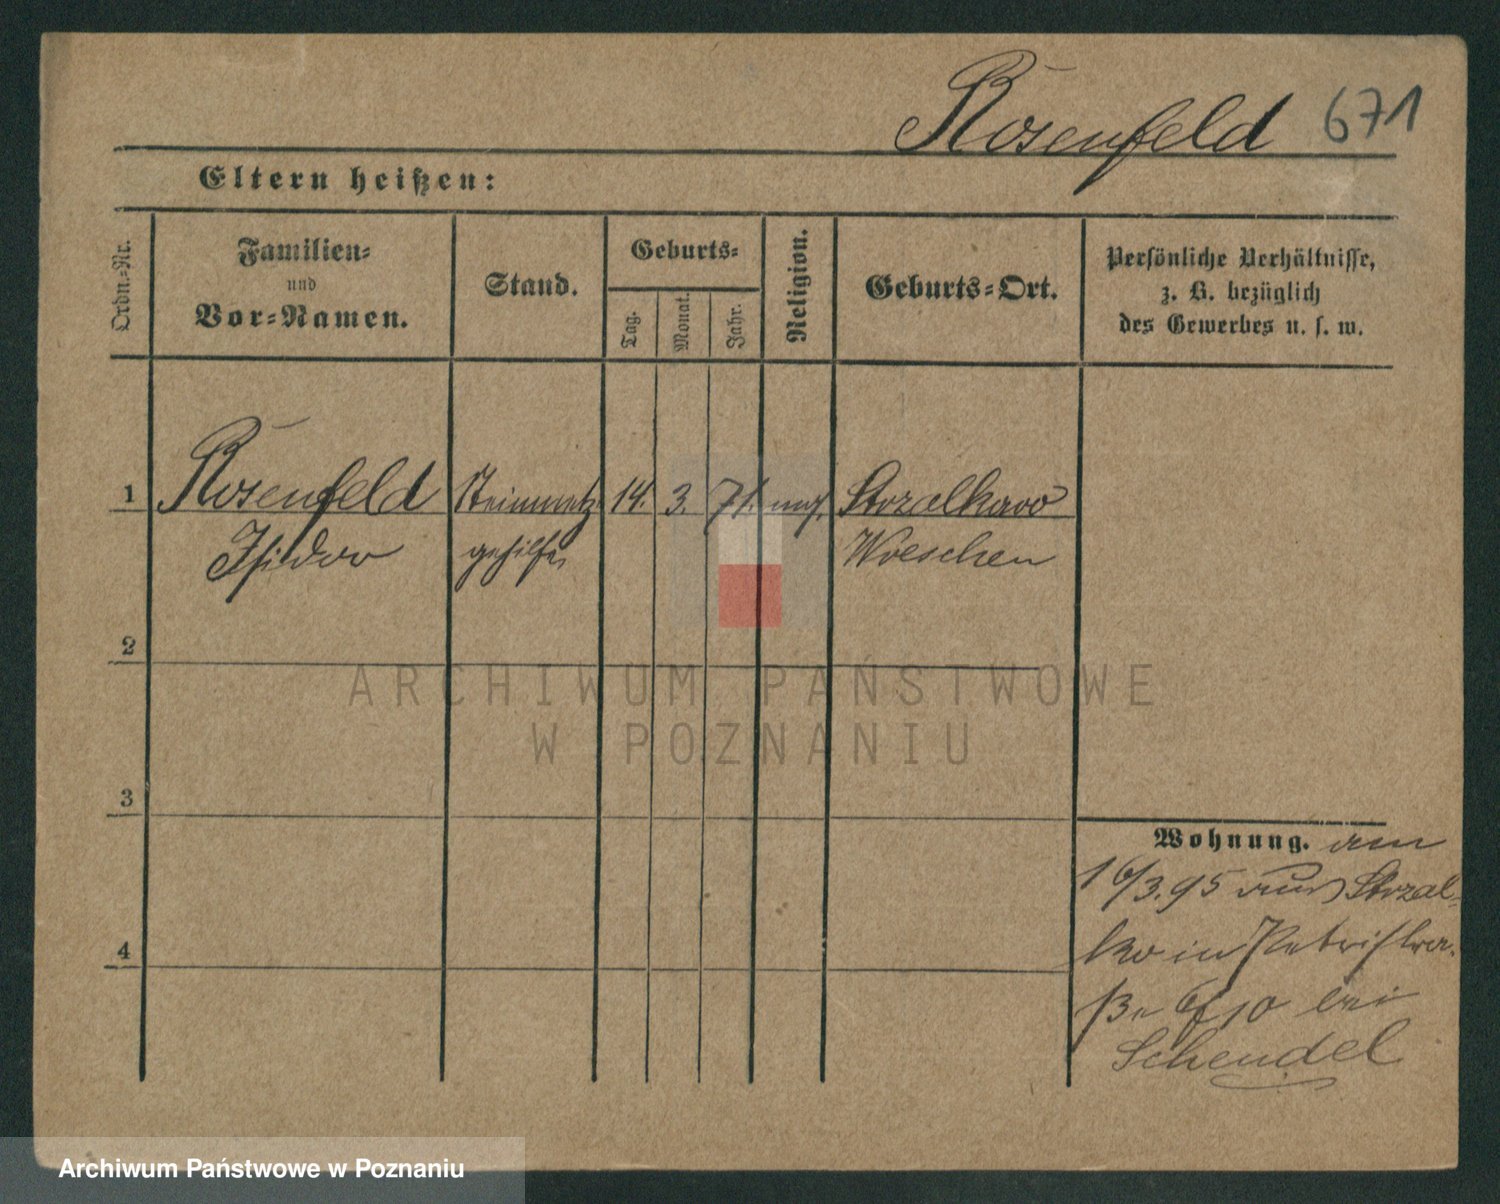 Rosenfeld 671
Eltern heißen:
Ordn.-Nr.
Familien-
und
Vor-Namen.
Stand.
Geburts-
Tag.
Monat.
Jahr.
Religion.
Geburts-Ort.
Persönliche Verhältnisse,
z. B. bezüglich
des Gewerbes u. s. w.
1 Rosenfeld Steinmetz 14. 3. 71. mos. Strzalkowo
Isidor gehilfe Wreschen
2
3
4
Wohnung. am
16/3.95 aus Strzal-
ko in Petristra-
ße 10 bei
Schendel
ARCHIWUM PAŃSTWOWE
W POZNANIU
Archiwum Państwowe w Poznaniu